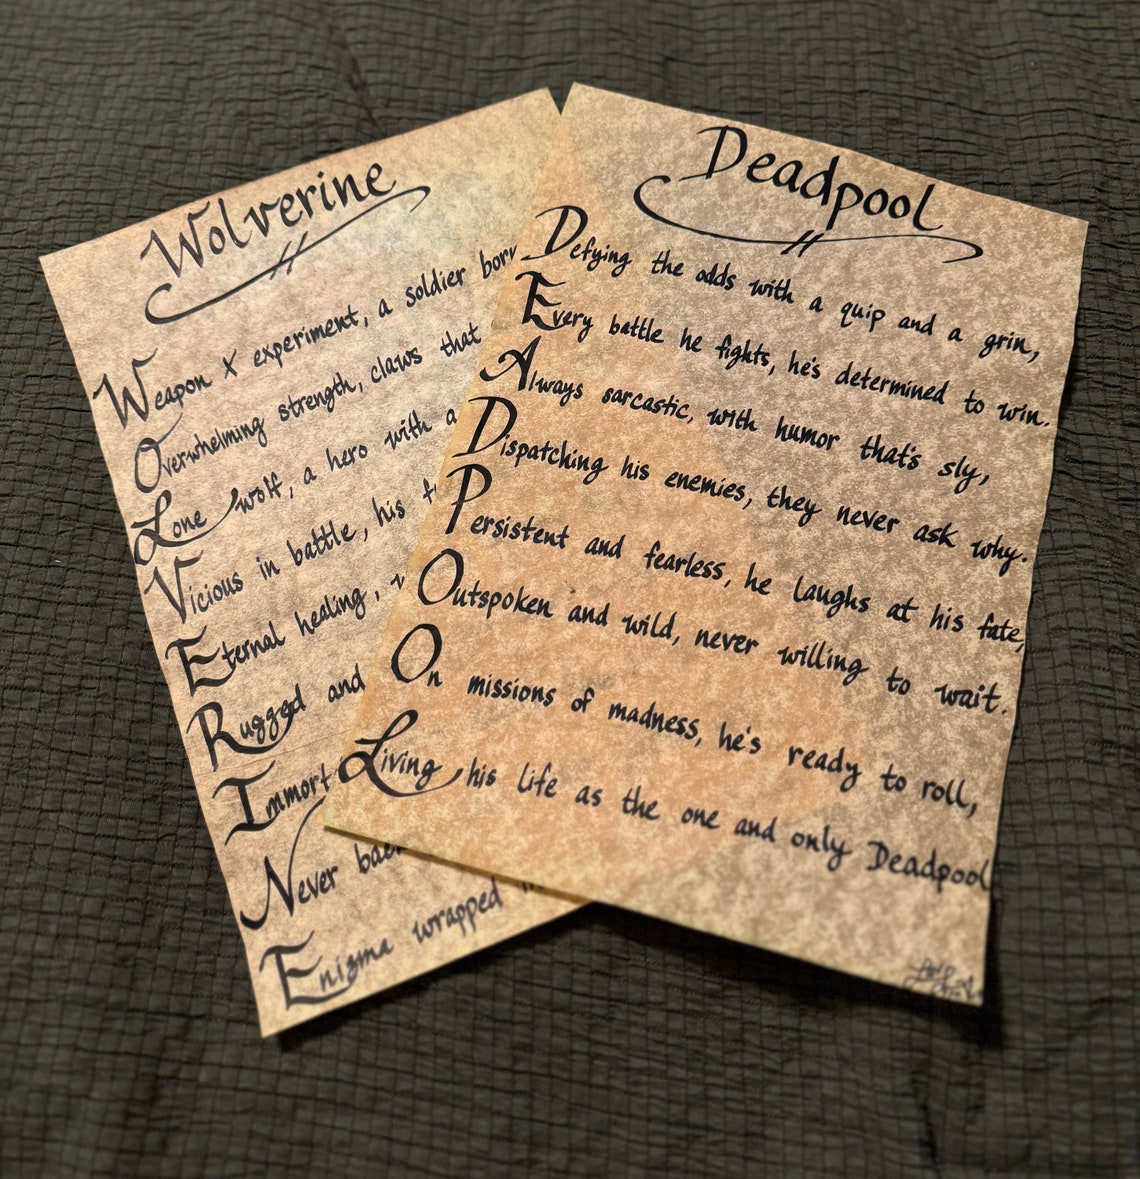 Wolverine
Weapon X experiment, a soldier born
Overwhelming strength, claws that
Lone wolf, a hero with a
Vicious in battle, his
Eternal healing,
Rugged and
Immort
Never bac
Enigma wrapped
Deadpool
Defying the odds with a quip and a grin,
Every battle he fights, he's determined to win.
Always sarcastic, with humor that's sly,
Dispatching his enemies, they never ask why.
Persistent and fearless, he laughs at his fate,
Outspoken and wild, never willing to wait.
On missions of madness, he's ready to roll,
Living his life as the one and only Deadpool